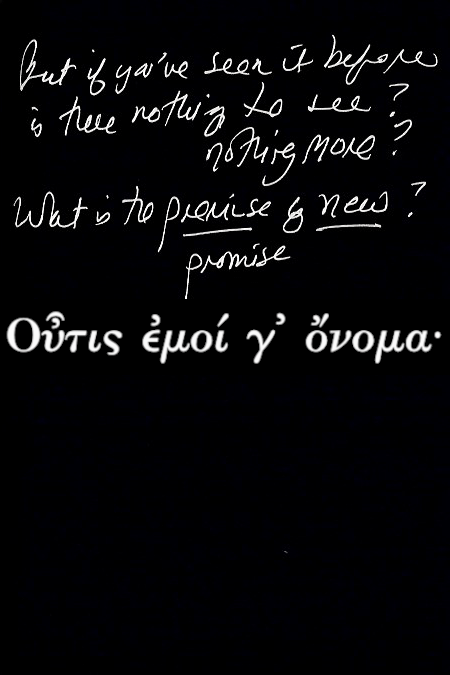 But if you've seen it before
is there nothing to see?
nothing more?
What is the premise of new?
promise
Οὖτις ἐμοί γ' ὄνομα·